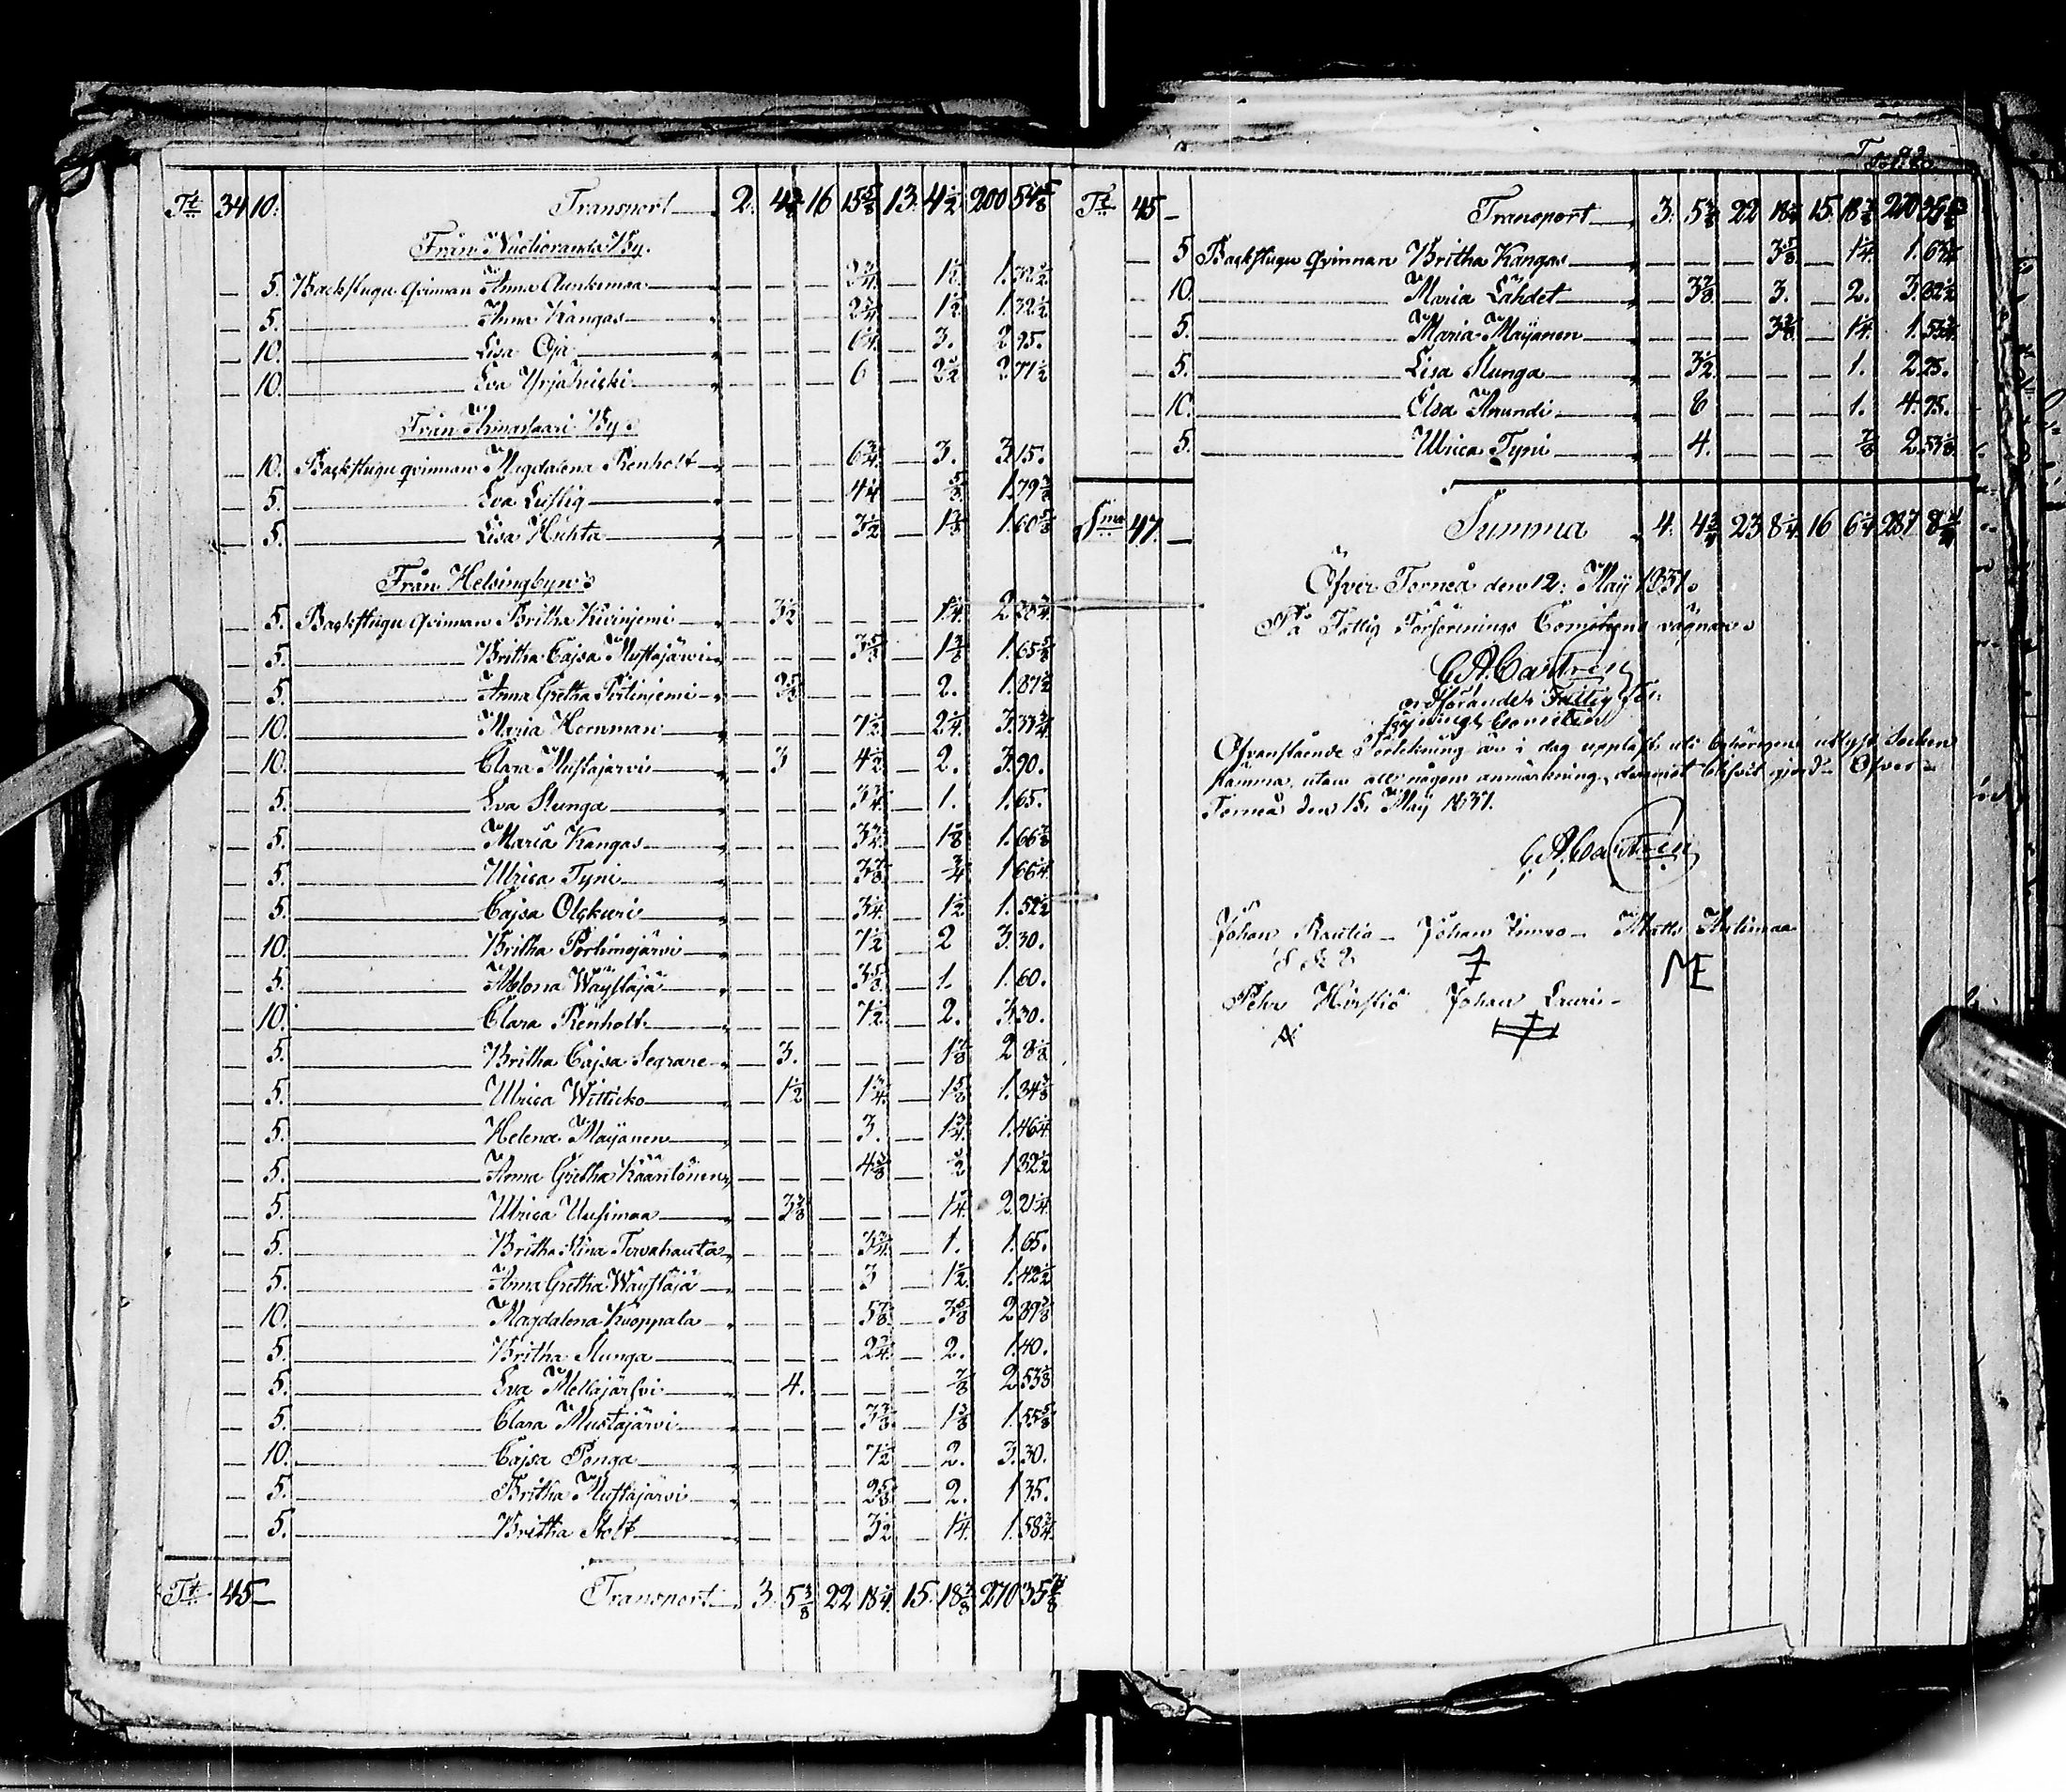 Tt 34 10. Transport 2. 4 3/8 16 15 5/8 13. 4 1/2 200 54 5/8
Från Nuotioranda By.
— 5. Backstugu qvinnan Anna Aunkimaa — — — 2 3/4 — 1 1/2 1. 32 1/2
— 5. Anna Kangas — — — 2 3/4 — 1 1/2 1. 32 1/2
— 10. Lisa Oja — — — 6 1/4 — 3. 2 95.
— 10. Eva Yrjäheicki — — — 6 — 2 1/2 2 71 1/2
Från Armassaari By.
— 10. Backstugu qvinnan Magdalena Renholt — — — 6 3/4 — 3. 3. 15.
— 5. Eva Lustig — — — 4 1/4 — 5/8 1. 79 3/8
— 5. Lisa Huhta — — — 3 1/2 — 1 3/8 1. 60 5/8
Från Helsingbyn
— 5. Backstugu qvinnan Britha Kivinjemi — 3 1/2 — — — 1 1/4 2
— 5. Britha Cajsa Mustajärvi — — — 3 5/8 — 1 3/8 1. 65 5/8
— 5. Anna Gretha Portinjemi — — — — 2. 1. 87 1/2
— 10. Maria Hornman — — — 7 1/2 — 2 1/4 3. 33 3/4
— 10. Clara Mustajarvi — 3 — 4 1/2 — 2. 3. 90.
— 5. Eva Slunga — — — 3 3/4 — 1. 1. 65.
— 5. Maria Kangas — — — 3 3/4 — 1. 66 7/8
— 5. Ulrica Tyni — — — 3 7/8 — 3/4 1 66 1/4
— 5. Cajsa Olckuri — — — 3 1/4 — 1 1/2 1. 52 1/2
— 10. Britha Portimojärvi — — — 7 1/2 — 2 3. 30.
— 5. Wäystäjä — — — 3 5/8 — 1. 1. 60.
— 10. Clara Renholt — — — 7 1/2 — 2. 3. 30.
— 5. Britha Cajsa Segrare — 3. — — — 1 7/8 2 8 1/8
— 5. Ulrica Witticko — 1 1/2 — 1 3/4 — 1 5/8 1. 34 3/8
— 5. Helena Mäyänen — — — 3. — 1 1/4. 1. 46 1/4
— 5. Anna Gretha — — — 4 3/8 — 1/2 1 32 1/2
— 5. Ulrica Uusimaa — 3 3/8 — — — 1 3/4 2. 21 1/4
— 5. Britha Stina Tervahauta — — — 3 3/4 — 1. 1. 65.
— 5. Anna Gretha Wäystäjä — — — 3 — 1 1/2 1. 42 1/2
— 10. Magdalena Kuoppala — — — 5 7/8 — 3 5/8 2 89 3/8
— 5. Britha Slunga — — — 2 3/4 — 2. 1. 40.
— 5. Eva Mellajärfvi — 4. — — — 7/8 2 53 1/8
— 5. Clara Mustajärvi — — — 3 3/8 — 1 3/8 1. 55 5/8
— 10. Cajsa Ponga — — — 7 1/2 — 2. 3. 30.
— 5. Britha Mustajärvi — — — 2 5/8 — 2. 1 35.
— 5. Britha Stolt — — — 3 1/2 — 1 1/4 1. 58 3/4
Tt 45 — Transport 3. 5 3/8 22 18 1/4 15. 18 3/8 270 35 7/8
Tt 45 — Transport 3. 5 3/8 22 18 1/4 15. 18 3/8 270 35 7/8
— 5 Backstugu qvinnan Britha Kangas — — — 3 5/8 — 1 1/4 1. 63 3/4
— 10. Maria Lahdet — 3 7/8 — 3. — 2. 3. 82 1/2
— 5. Maria Mäyänen — — — 3 3/8 — 1 1/4 1. 53 3/4
— 5. Lisa Slunga — 3 1/2 — — — 1. 2 25.
— 10. Elsa Arundi — 8 — — — 1. 4. 95.
— 5. Ulrica Tyni — 4. — — — 7/8 2. 53 1/8
Sma 47. — Summa 4. 4 3/4 23 8 1/4 16 6 1/4 287 8 3/4
Öfver Torneå den 12: Maÿ 1837.
På Fattig Försörjnings Comiteens vägnar
C A Castren
ordförande i Fattig För-
sörjnings Comitéen
Ofvanstående Förteckning är i dag uppläst uti behörigen utlyst Socken
stämma, utan att någon anmärkning deremot blifvit gjord. Öfver
Torneå den 15. Maÿ 1837.
C A Castrén
Johan Rautio — Johan — Matts
Pehr Johan Lauri —